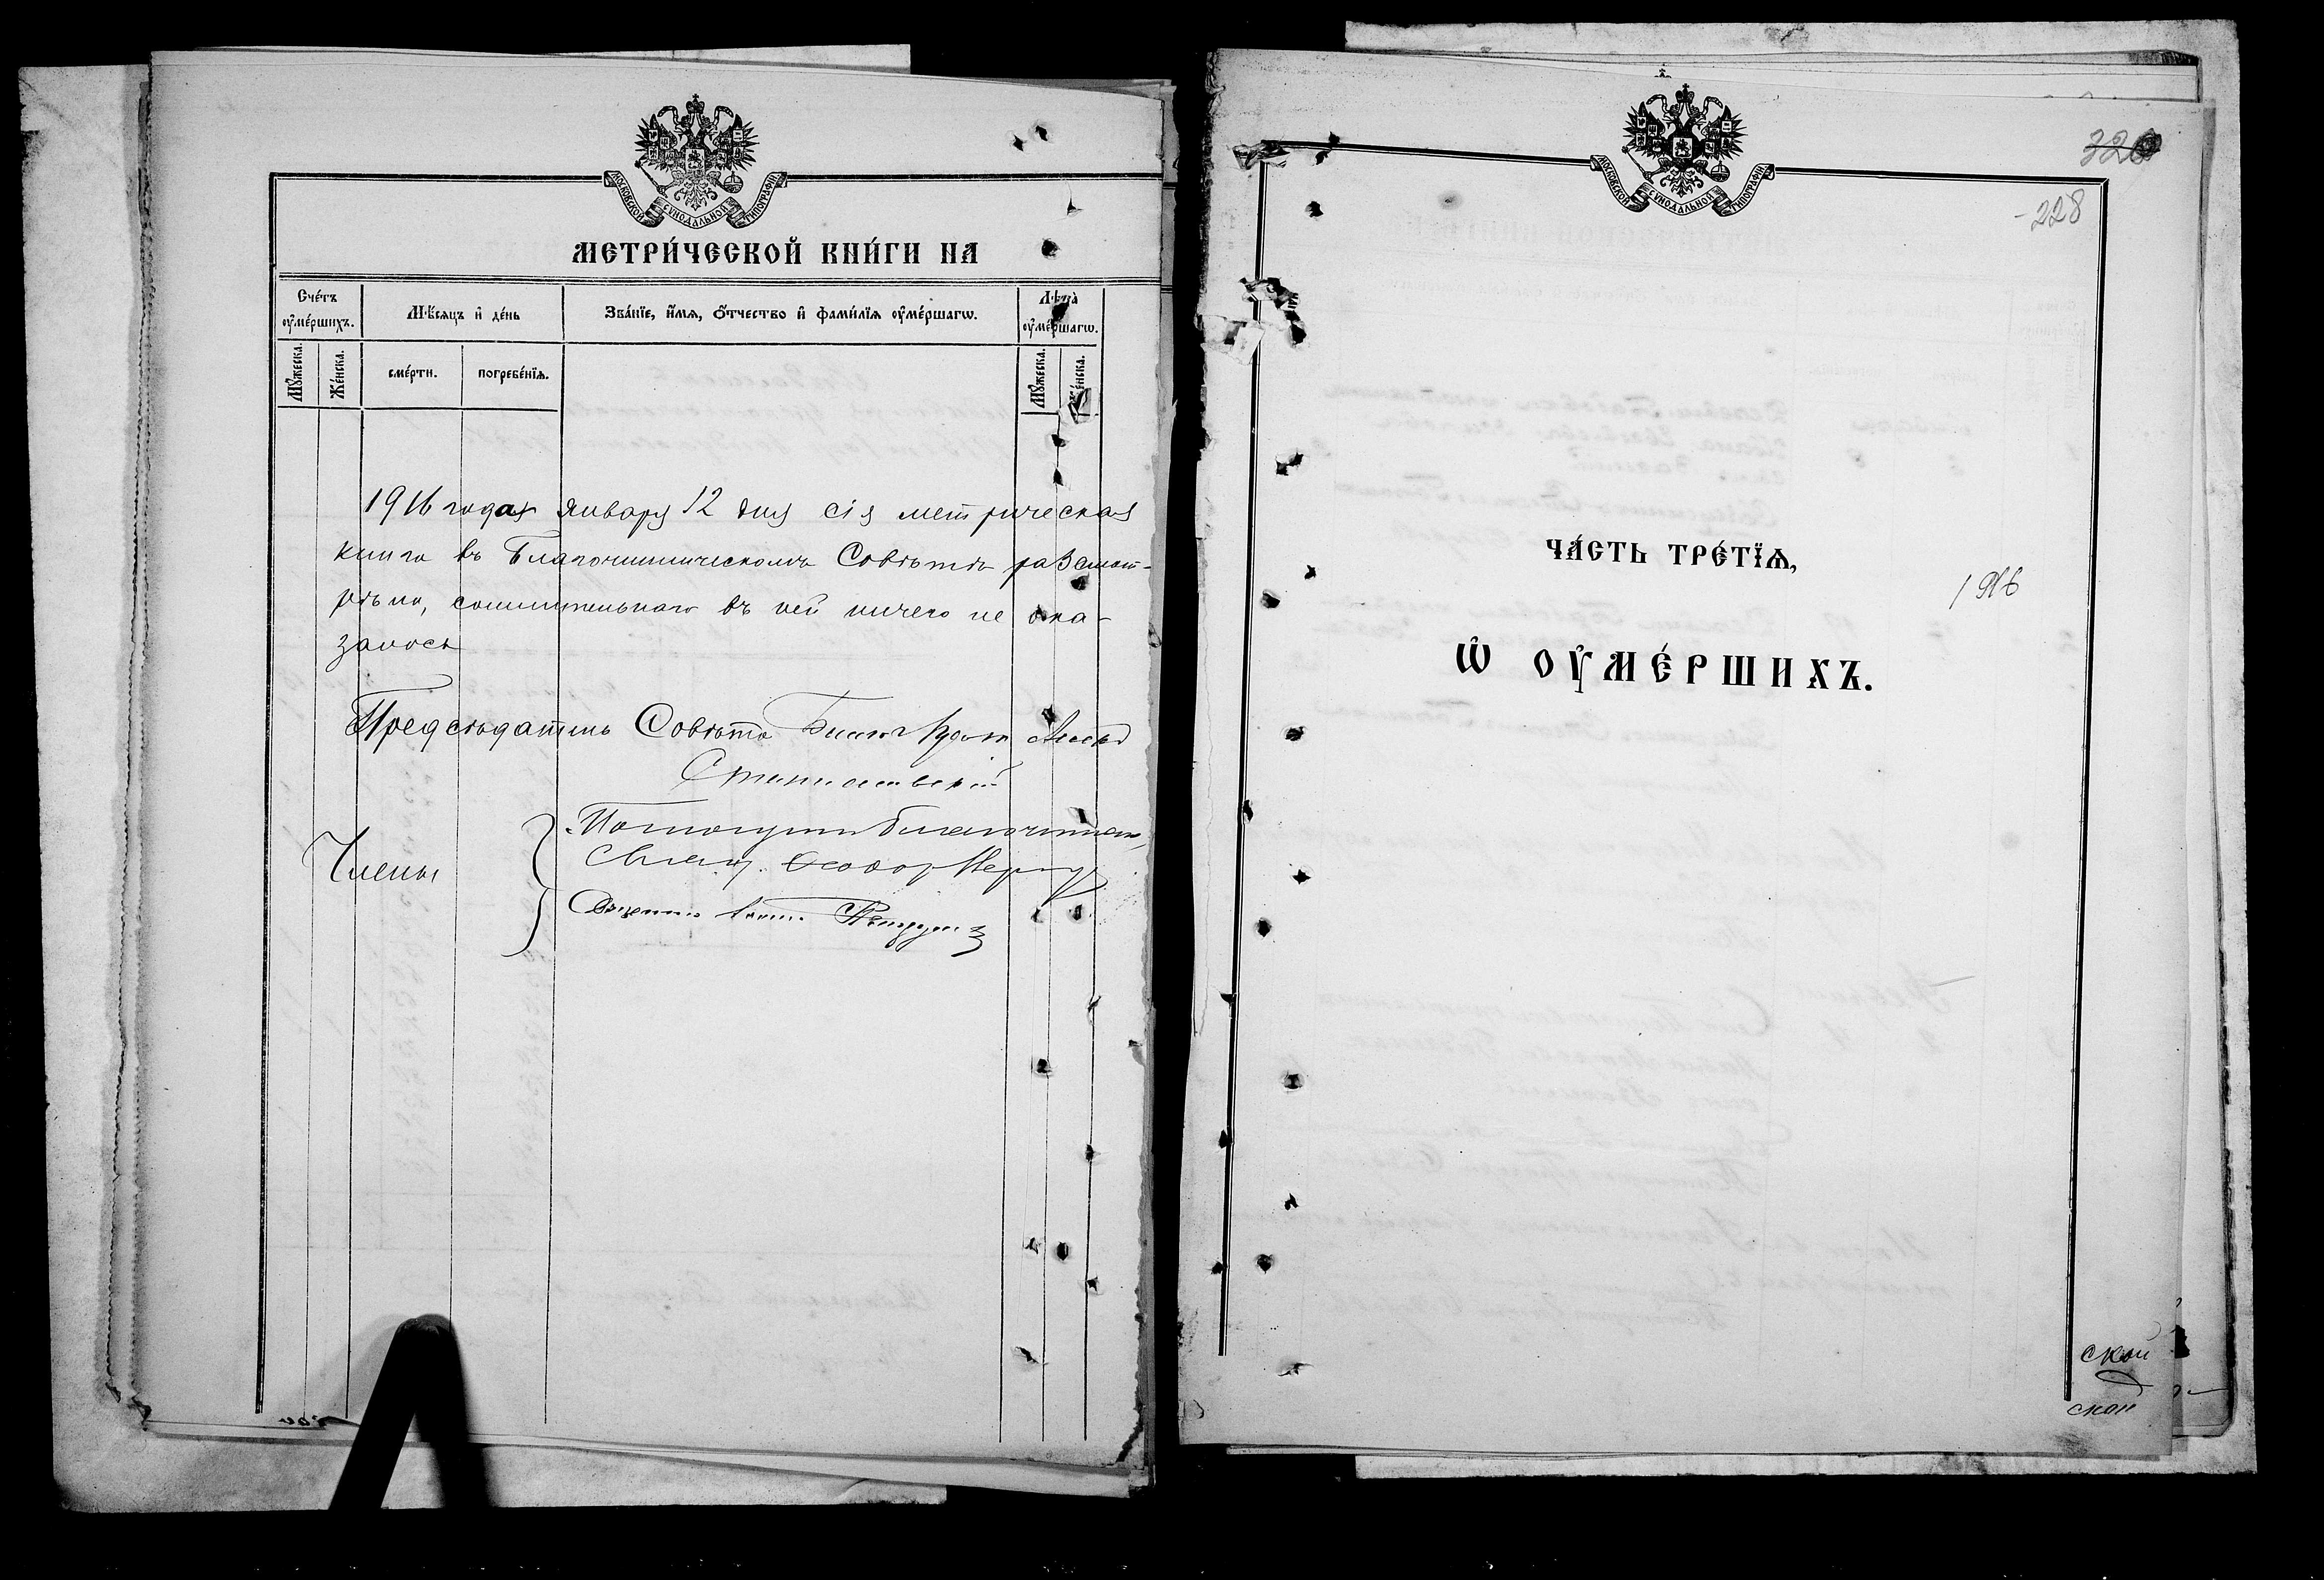 МОСКОВСКОЙ СѴНОДАЛЬНОЙ ТИПОГРАФІИ
МЕТРИ́ЧЕСКОЙ КНИ́ГИ НА
Сче́тъ ᲂу҆ме́ршихъ.
Мѣ́сяцъ и҆ де́нь
Зва́нїе, и҆́мѧ, ѻ҆́тчество и҆ фами́лїѧ ᲂу҆ме́ршагѡ.
Лѣта̀ ᲂу҆ме́ршагѡ.
Мꙋ́жеска.
Же́нска.
сме́рти.
погребе́нїѧ.
Мꙋ́жеска.
Же́нска.
1916 года января 12 дня сія метрическая
книга въ Благочинническомъ Совѣтѣ разсмот-
рѣна, сомнительнаго въ ней ничего не ока-
залось
Предсѣдатель Совѣта
Члены
Помощникъ благочиннаго,
Ѳеодоръ
МОСКОВСКОЙ СѴНОДАЛЬНОЙ ТИПОГРАФІИ
326
228
ЧА́СТЬ ТРЕ́ТЇѦ,
1916
Ѡ҆ ОУ҆МЕ́РШИХЪ.
ской
ской